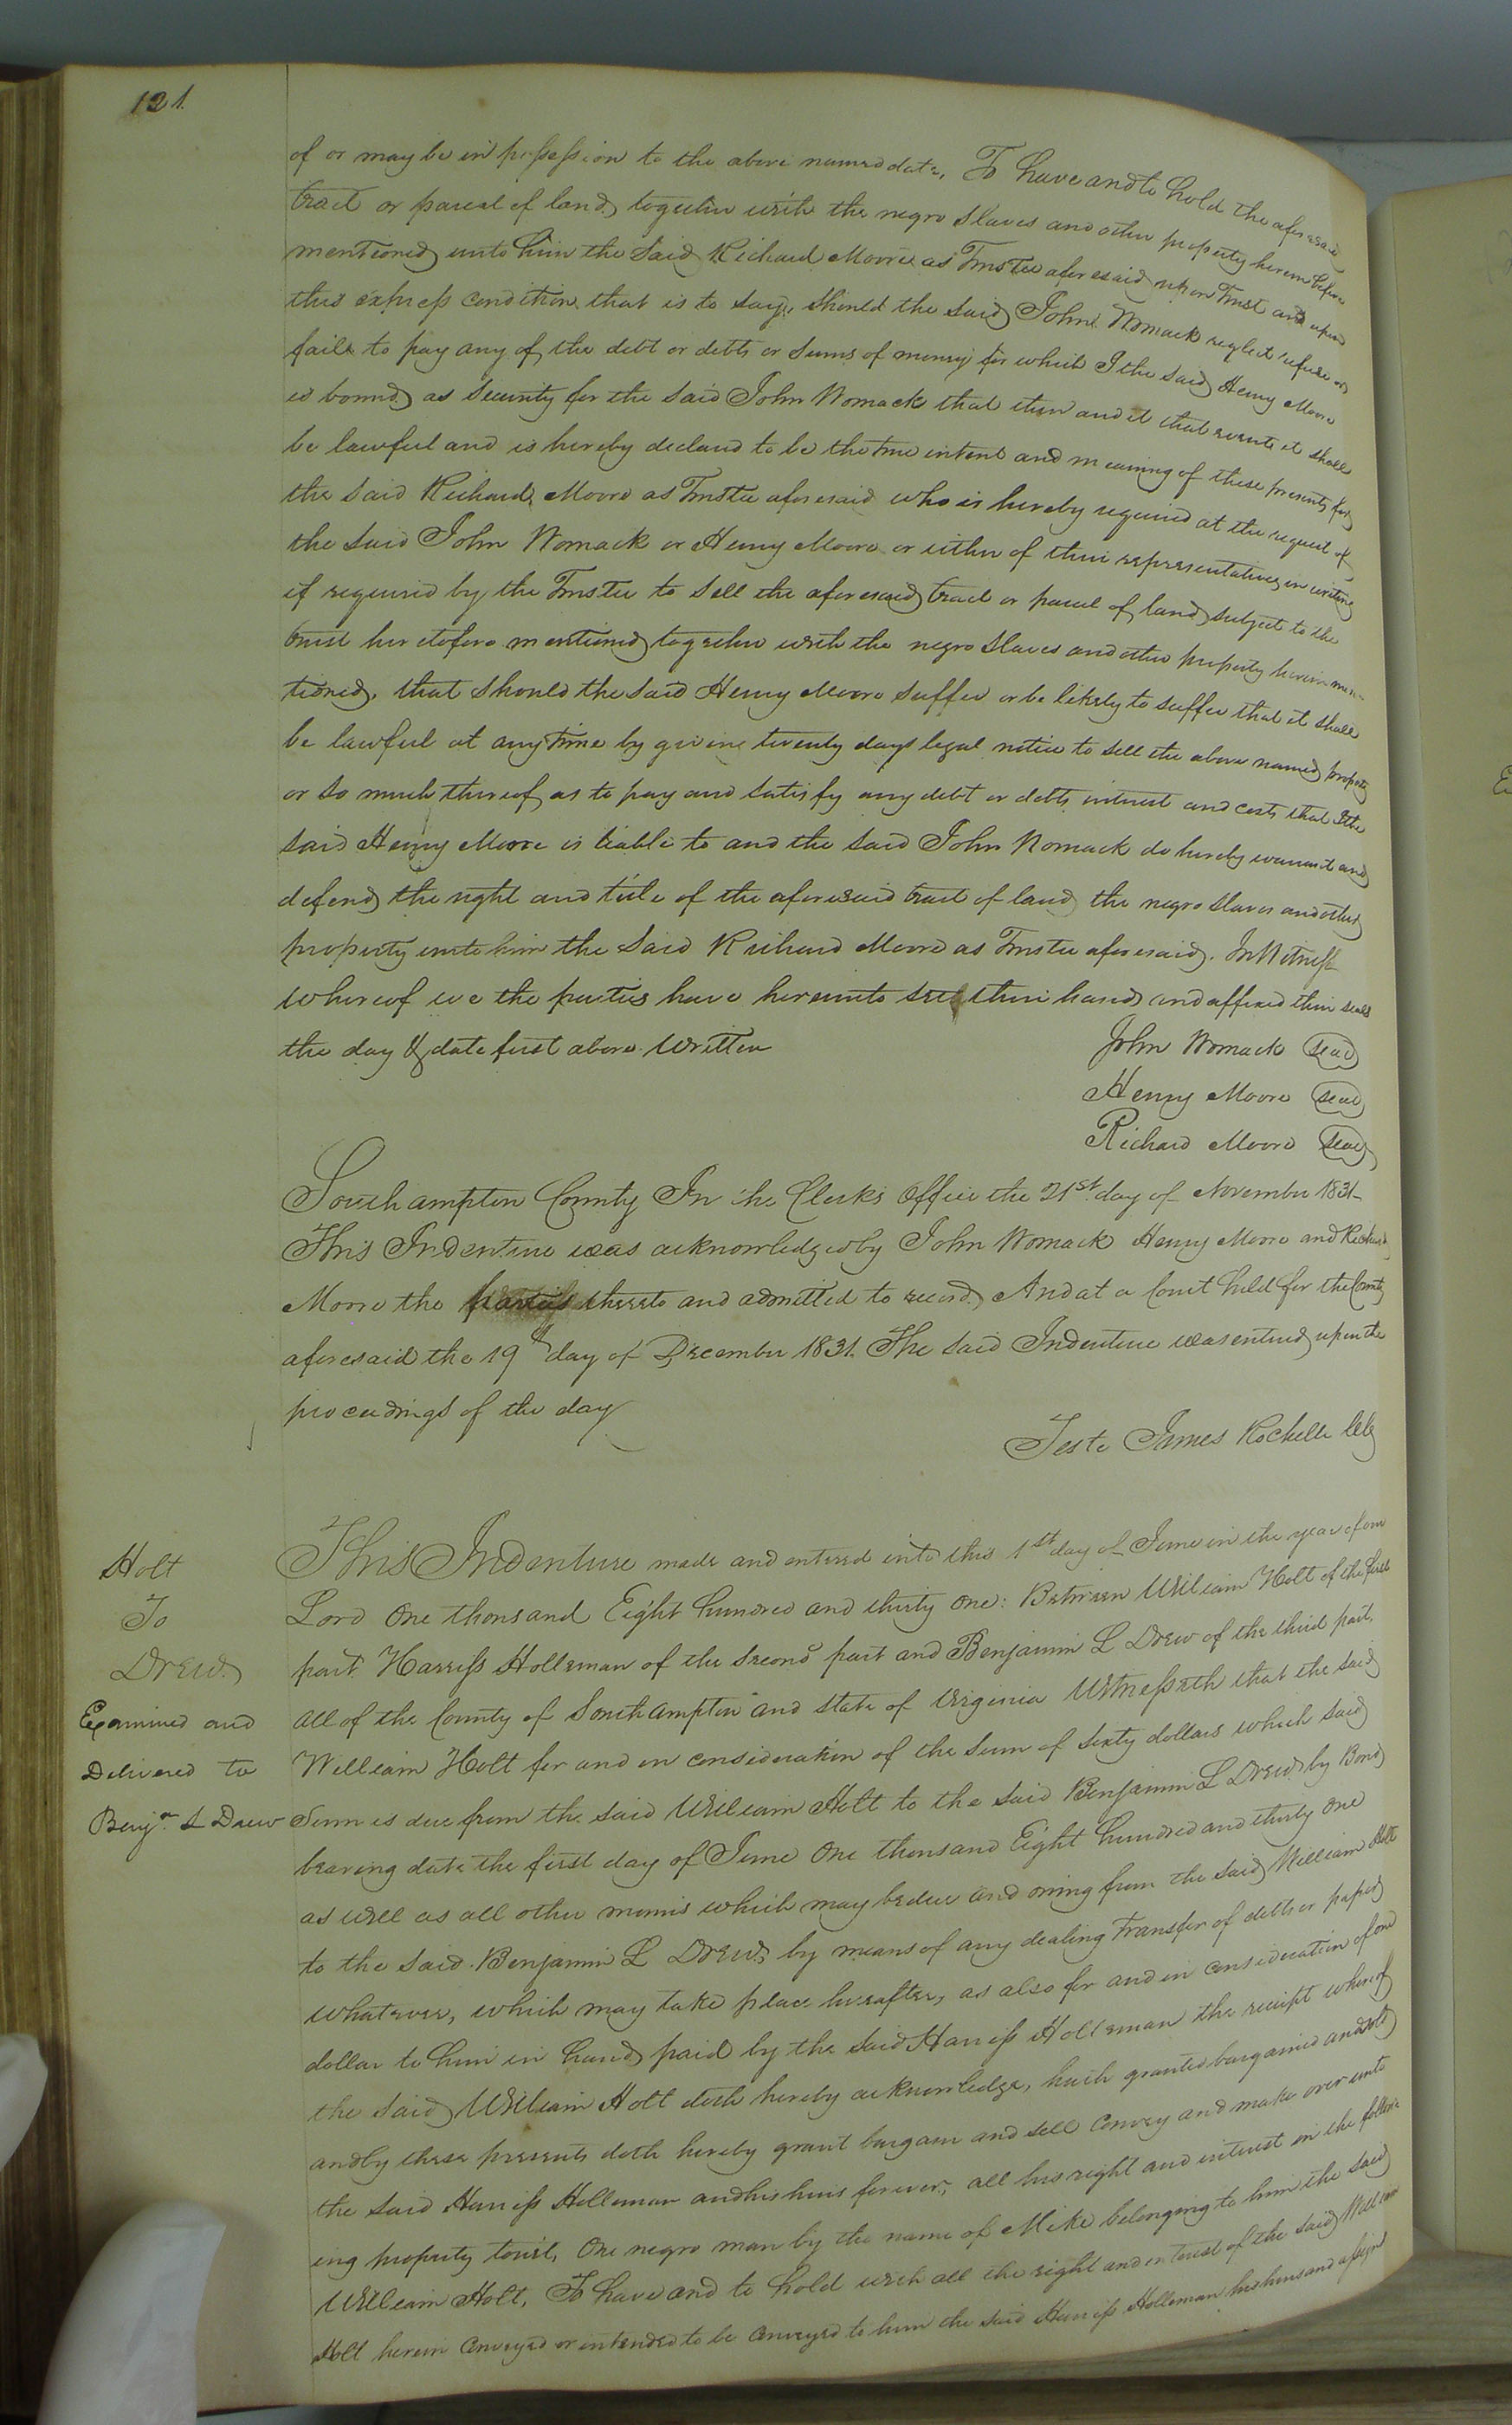 121.
of or may be in possession to the above named date, To have and to hold the aforesaid
tract or parcel of land together with the negro Slaves and other property herein before
mentioned unto him the Said Richard Moore as Trustee aforesaid upon Trust and upon
this express condition that is to say, should the said John Womack neglect refuse or
faile to pay any of the debt or debts or Sums of money for which I the said Henry Moore
is bound as Security for the Said John Womack that then and it that events it shall
be lawful and is hereby declared to be the true intent and meaning of these presents for
the said Richard Moore as Trustee aforesaid who is hereby required at the request of
the said John Womack or Henry Moore or either of their representatives in writing
if required by the Trustee to Sell the aforesaid tract or parcel of land subject to the
trust heretofore mentioned together with the negro Slaves and other property herein men-
tioned, that should the said Henry Moore suffer or be likely to suffer that it shall
be lawful at any time by giving twenty days legal notice to sell the above named property
or so much thereof as to pay and satisfy any debt or debts interest and costs that I the
said Henry Moore is liable to and the said John Womack do hereby warrant and
defend the right and title of the aforesaid tract of land the negro Slaves and other
property unto him the Said Richard Moore as Trustee aforesaid. In Witness
whereof we the parties have hereunto set their hands and affixed their seals
the day & date first above Written
John Womack seal
Henry Moore seal
Richard Moore seal
Southampton County In the Clerk's Office the 21st. day of November 1831-
This Indenture was acknowledged by John Womack Henry Moore and Richard
Moore the parties thereto and admitted to record And at a Court held for the County
aforesaid the 19th day of December 1831. The said Indenture was entered upon the
proceedings of the day
Teste James Rochelle Clk
Holt
To
Drew.
Examined and
Delivered to
Benjn. L Drew
This Indenture made and entered into this 1st day of June in the year of our
Lord One thousand Eight hundred and thirty one: Between William Holt of the first
part Harriss Holleman of the second part and Benjamin L Drew of the third part.
all of the County of Southampton and State of Virginia Witnesseth that the said
William Holt for and in consideration of the sum of sixty dollars which said
Sum is due from the said William Holt to the said Benjamin L Drew by Bond
bearing date the first day of June One thousand Eight hundred and thirty one
as well as all other monies which may be due and owing from the said William Holt
to the said Benjamin L Drew, by means of any dealing Transfer of debts or papers
whatever, which may take place hereafter, as also for and in consideration of one
dollar to him in hand paid by the said Harriss Holleman the receipt whereof
the said William Holt doth hereby acknowledge, hath granted bargained and sold
and by these presents doth hereby grant bargain and sell convey and make over unto
the said Harriss Holleman and his heirs forever, all his right and interest in the follow-
ing property towit, One negro man by the name of Mike belonging to him the said
William Holt, To have and to hold with all the right and interest of the said William
Holt herein conveyed or intended to be conveyed to him the said Harriss Holleman his heirs and assigns